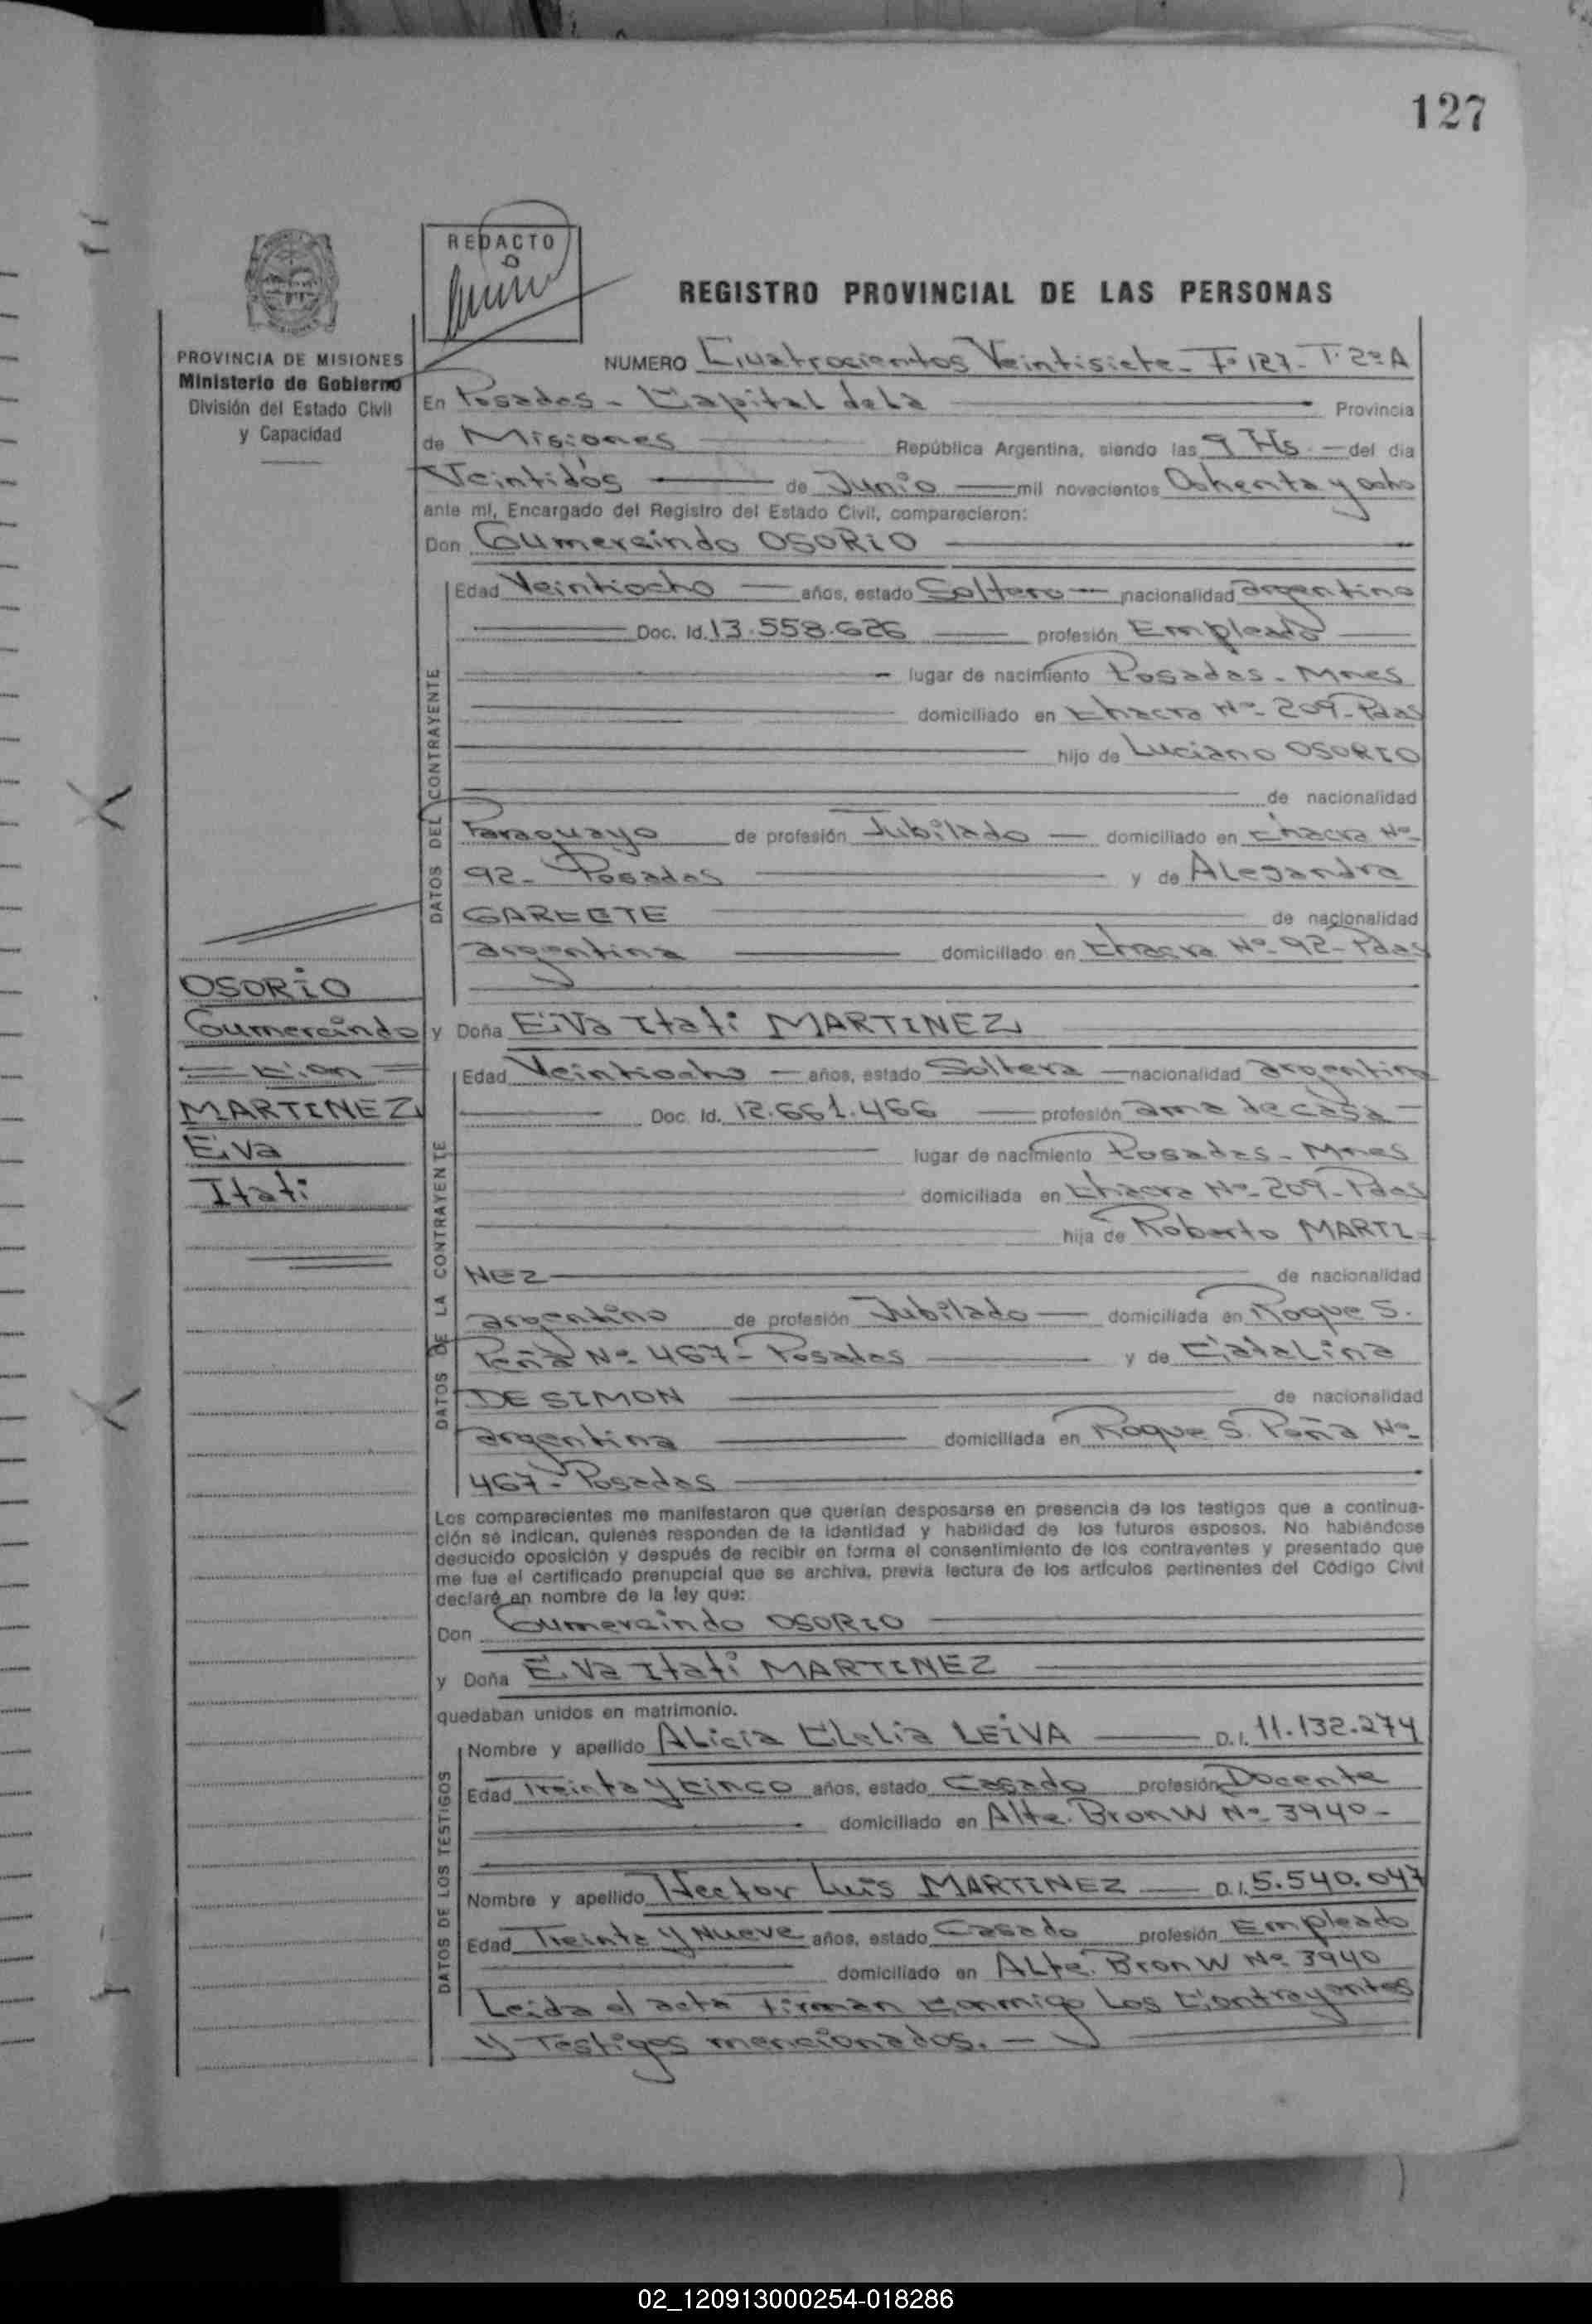 127
REDACTO
REGISTRO PROVINCIAL DE LAS PERSONAS
PROVINCIA DE MISIONES
Ministerio de Gobierno
División del Estado Civil
y Capacidad
NUMERO Cuatrocientos Veintisiete - Fº 127 - T. 2º A
En Posadas - Capital de la Provincia
de Misiones República Argentina, siendo las 9 Hs. del dia
Veintidós de Junio mil novecientos Ochenta y ocho
ante mí, Encargado del Registro del Estado Civil, comparecieron:
Don Gumercindo OSORIO
DATOS DEL CONTRAYENTE
Edad Veintiocho años, estado Soltero nacionalidad argentino
Doc. Id. 13.558.626 profesión Empleado
lugar de nacimiento Posadas - Mnes
domiciliado en Chacra Nº 209 - Pdas
hijo de Luciano OSORIO
de nacionalidad
Paraguayo de profesión Jubilado domiciliado en Chacra Nº
92 - Posadas y de Alejandra
GARCETE de nacionalidad
argentina domiciliado en Chacra Nº 92 - Pdas
OSORIO
Gumercindo
= Con =
MARTINEZ
Eva
Itati
y Doña Eva Itati MARTINEZ
DATOS DE LA CONTRAYENTE
Edad Veintiocho años, estado Soltera nacionalidad argentina
Doc. Id. 12.661.466 profesión ama de casa
lugar de nacimiento Posadas - Mnes
domiciliada en Chacra Nº 209 - Pdas
hija de Roberto MARTI=
NEZ de nacionalidad
argentino de profesión Jubilado domiciliada en Roque S.
Peña Nº 467 - Posadas y de Catalina
DE SIMON de nacionalidad
argentina domiciliada en Roque S. Peña Nº
467 - Posadas
Los comparecientes me manifestaron que querían desposarse en presencia de los testigos que a continua-
ción se indican, quienes responden de la identidad y habilidad de los futuros esposos. No habiéndose
deducido oposición y después de recibir en forma el consentimiento de los contrayentes y presentado que
me fue el certificado prenupcial que se archiva, previa lectura de los artículos pertinentes del Código Civil
declaré en nombre de la ley que:
Don Gumercindo OSORIO
y Doña Eva Itati MARTINEZ
quedaban unidos en matrimonio.
DATOS DE LOS TESTIGOS
Nombre y apellido Alicia Clelia LEIVA D. I. 11.132.274
Edad Treinta y Cinco años, estado Casado profesión Docente
domiciliado en Alte. Bron W Nº 3940 -
Nombre y apellido Hector Luis MARTINEZ D. I. 5.540.047
Edad Treinta y Nueve años, estado Casado profesión Empleado
domiciliado en Alte. Bron W Nº 3940
Leida el acta firman conmigo Los Contrayentes
y Testigos mencionados. -
02_120913000254-018286